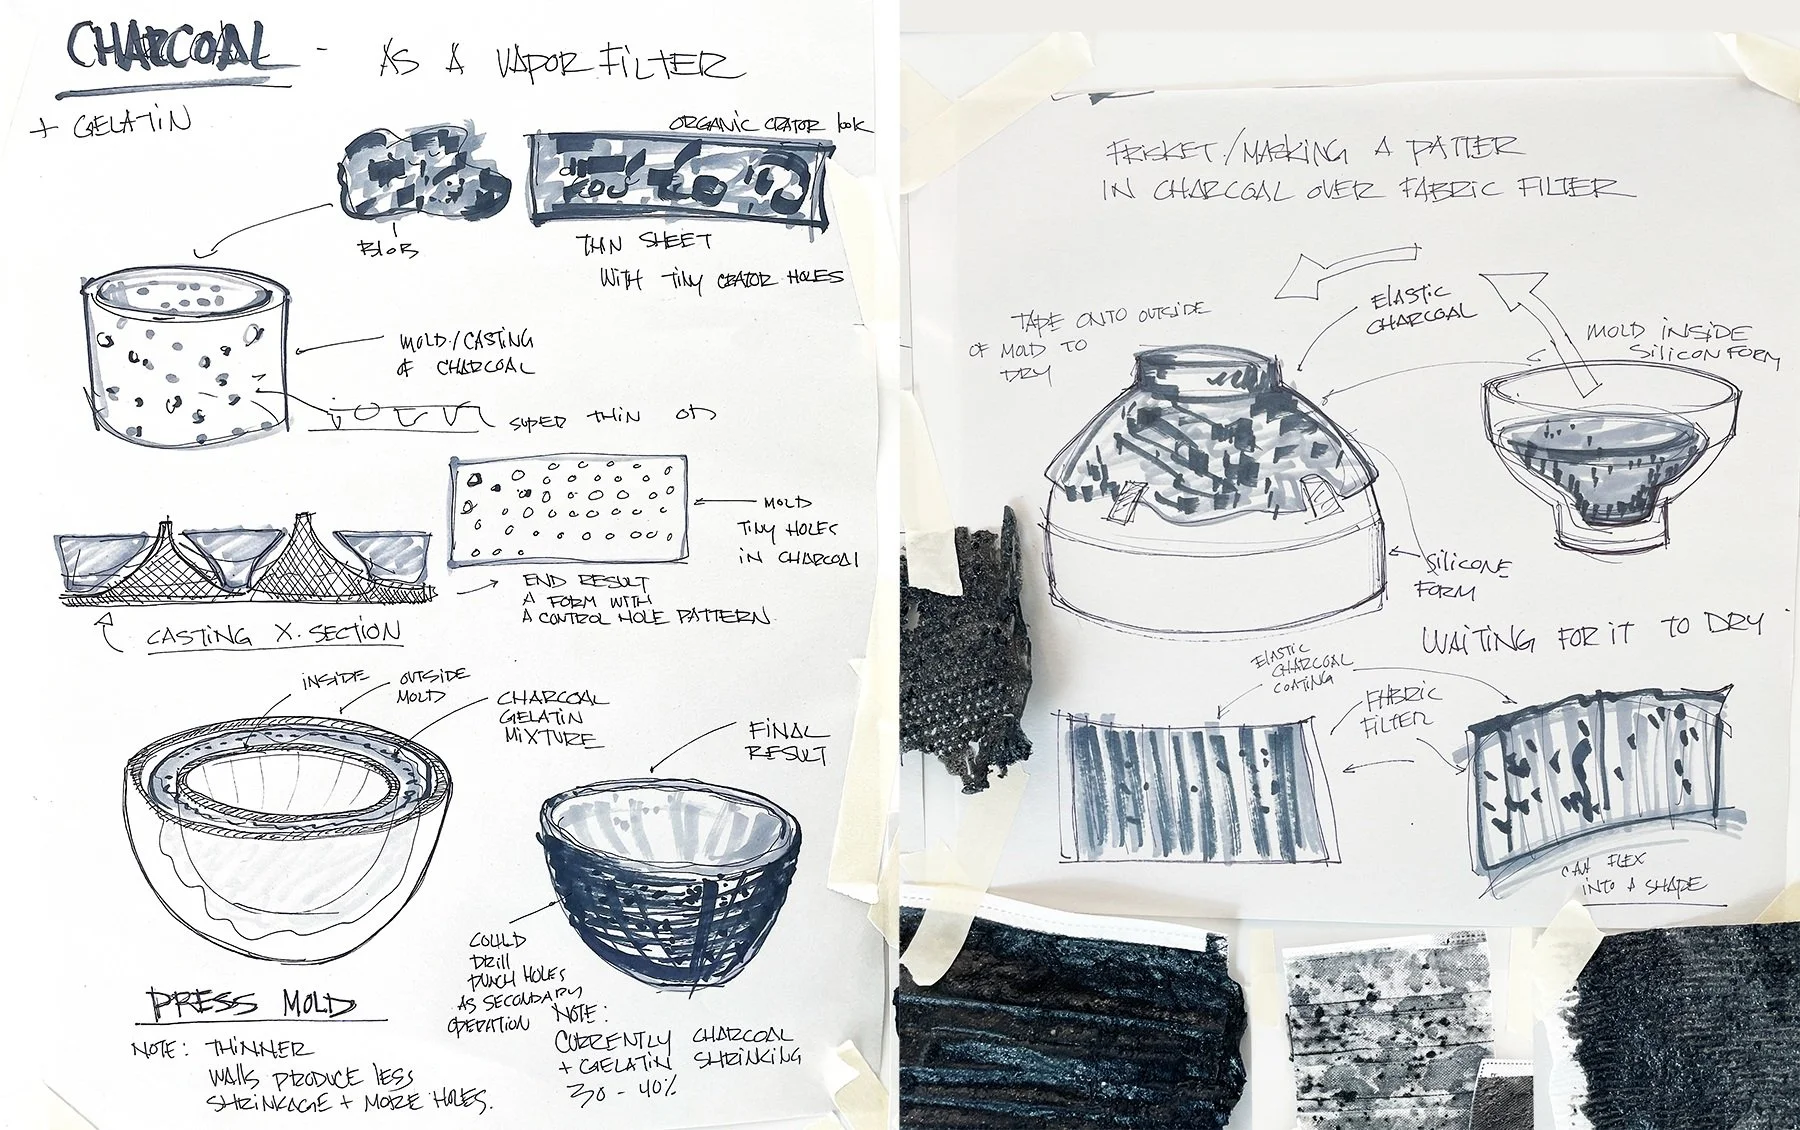 CHARCOAL - AS A VAPOR FILTER
+ GELATIN
ORGANIC CRATOR look
BLOB
THIN SHEET
WITH TINY CRATOR HOLES
MOLD/CASTING
OF CHARCOAL
SUPER THIN
MOLD
TINY HOLES
IN CHARCOAL
END RESULT
A FORM WITH
A CONTROL HOLE PATTERN
CASTING X-SECTION
INSIDE
OUTSIDE
MOLD
CHARCOAL
GELATIN
MIXTURE
FINAL
RESULT
COULD
DRILL
PUNCH HOLES
AS SECONDARY
OPERATION
PRESS MOLD
NOTE: THINNER
WALLS PRODUCE LESS
SHRINKAGE + MORE HOLES.
NOTE:
CURRENTLY CHARCOAL
+ GELATIN SHRINKING
30 - 40%
FRISKET/MASKING A PATTER
IN CHARCOAL OVER FABRIC FILTER
TAPE ONTO OUTSIDE
OF MOLD TO
DRY
ELASTIC
CHARCOAL
MOLD INSIDE
SILICON FORM
SILICONE
FORM
WAITING FOR IT TO DRY
ELASTIC
CHARCOAL
COATING
FABRIC
FILTER
CAN FLEX
INTO A SHAPE